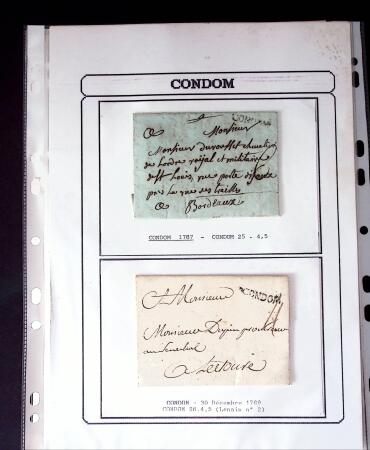 CONDOM
CONDOM
A Monsieur
Monsieur
de Lordre roÿal et militaire
de St Louis, rue porte
près la rue des
A Bordeaux
CONDOM 1787 - CONDOM 25 - 4,5
CONDOM
A Monsieur
Monsieur Dupin procureur
au Senechal
A Lectoure
CONDOM - 30 Décembre 1789
CONDOM 26.4,5 (Lenain n° 2)